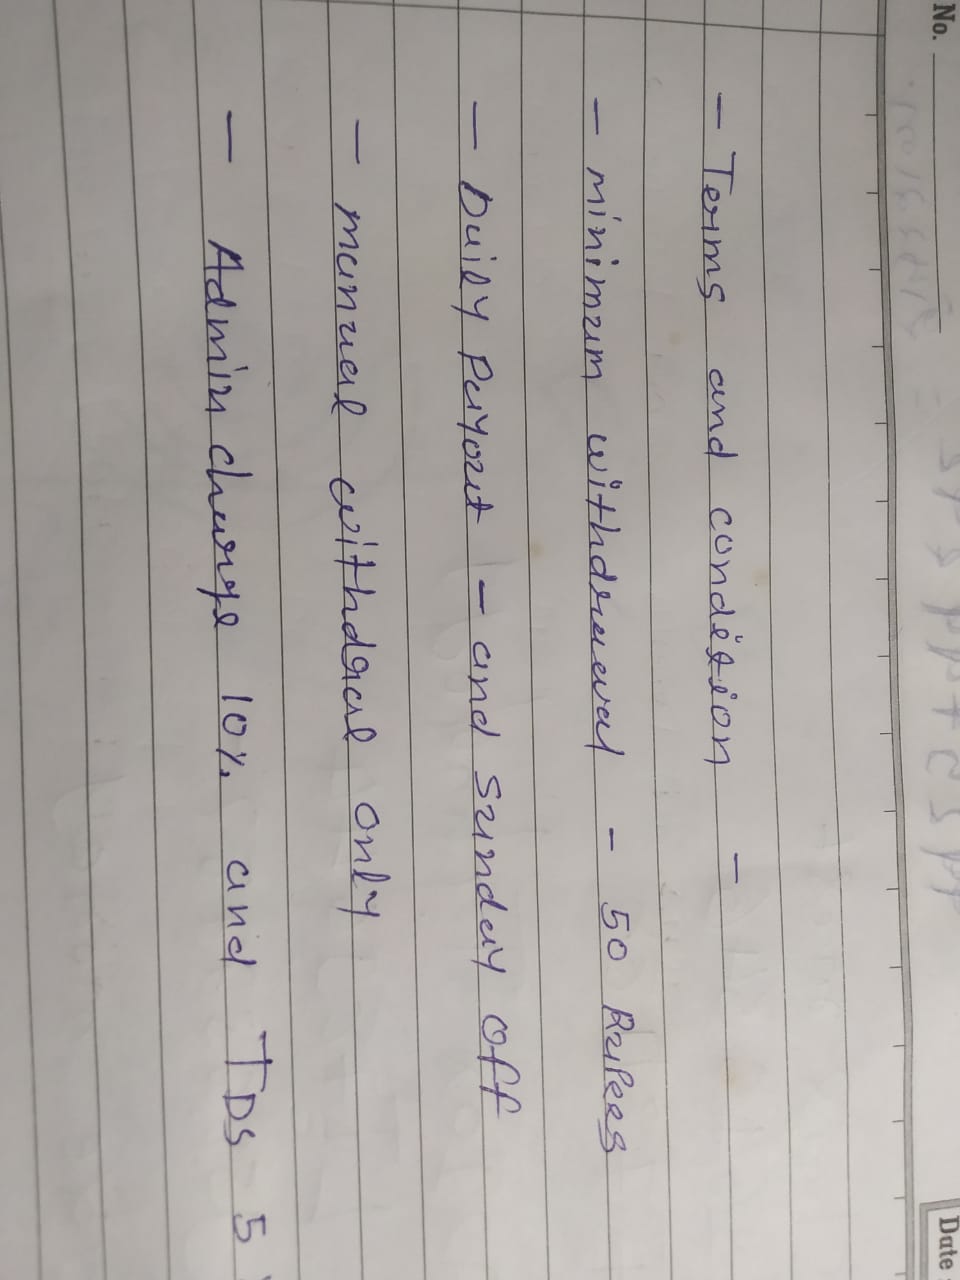 No.
Date
- Terms and condition -
- minimum withdrawal - 50 Rupees
- Daily Payout - and Sunday Off
- manual withdral only
- Admin charge 10% and TDS 5